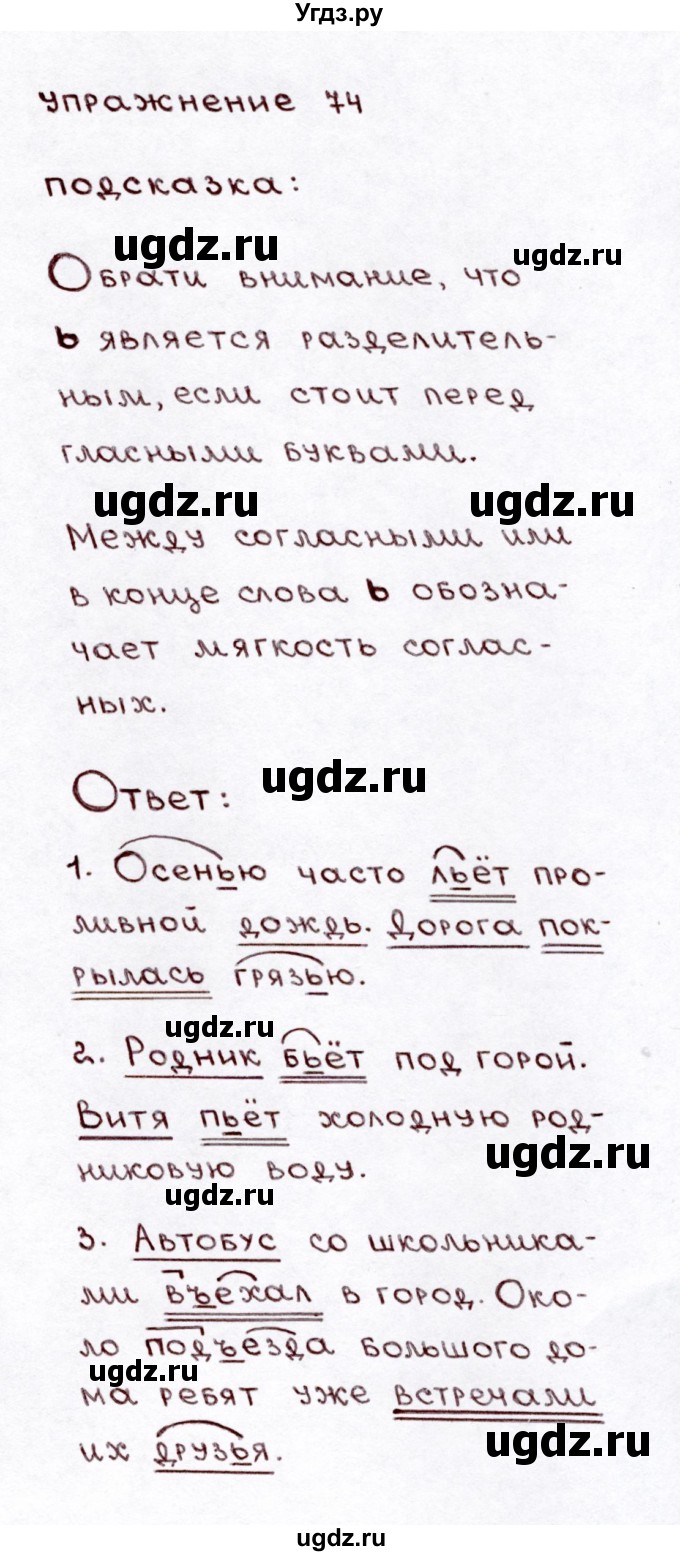 Угдз.ру
упражнение 74
подсказка:
ugdz.ru
ugdz.ru
Обрати внимание, что
ь является разделитель-
ным, если стоит перед
гласными буквами.
ugdz.ru
ugdz.ru
Между согласными или
в конце слова ь обозна-
чает мягкость соглас-
ных.
ugdz.ru
Ответ:
1. Осенью часто льёт про-
ливной дождь. Дорога пок-
рылась грязью.
ugdz.ru
2. Родник бьёт под горой.
Витя пьёт холодную род-
ugdz.ru
никовую воду.
ugdz.ru
3. Автобус со школьника-
ми въехал в город. Око-
ло подъезда большого до-
ugdz.ru
ма ребят уже встречали
ugdz.ru
их друзья.
ugdz.ru